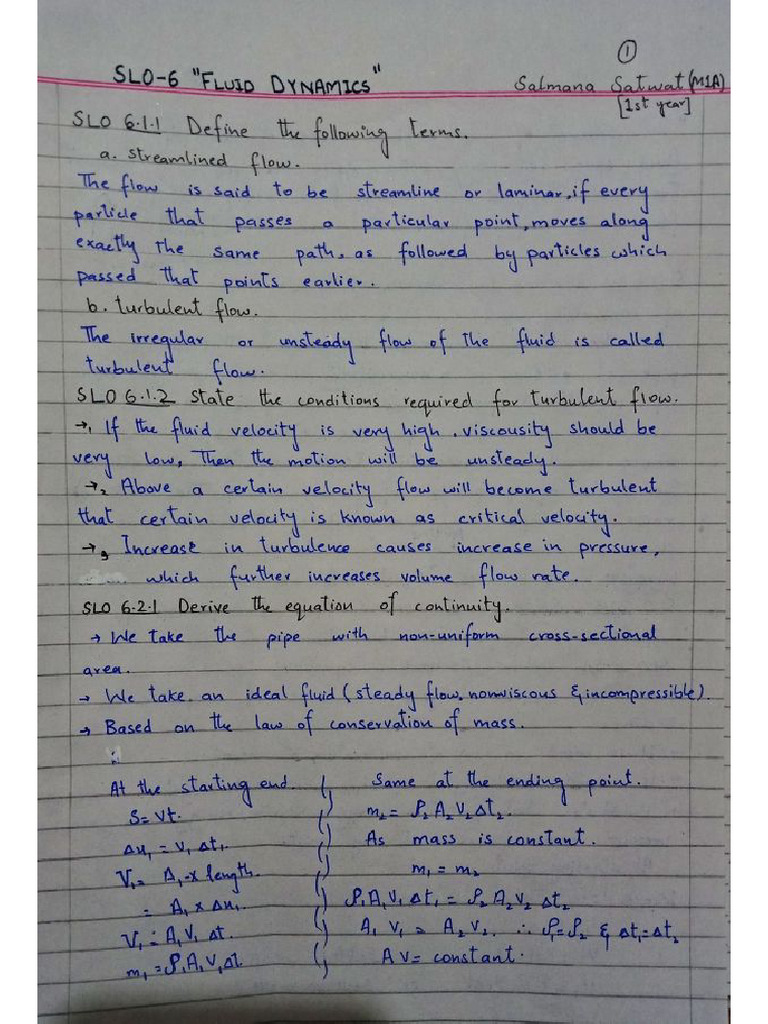 ①
SLO-6 "FLUID DYNAMICS"
Salmana Satwat (M1A)
[1st year]
SLO 6.1.1 Define the following terms.
a. streamlined flow.
The flow is said to be streamline or laminar, if every
particle that passes a particular point, moves along
exactly the same path, as followed by particles which
passed that points earlier.
b. turbulent flow.
The irregular or unsteady flow of the fluid is called
turbulent flow.
SLO 6.1.2 State the conditions required for turbulent flow.
→₁ If the fluid velocity is very high, viscousity should be
very low, Then the motion will be unsteady.
→₂ Above a certain velocity flow will become turbulent
that certain velocity is known as critical velocity.
→₃ Increase in turbulence causes increase in pressure,
which further increases volume flow rate.
SLO 6.2.1 Derive the equation of continuity.
→ We take the pipe with non-uniform cross-sectional
area.
→ We take an ideal fluid (steady flow, nonviscous & incompressible).
→ Based on the law of conservation of mass.
:
At the starting end.
S=Vt.
Δx₁ = V₁ Δt₁.
V₁= A₁ x length.
= A₁ x Δx₁.
V₁ = A₁V₁ Δt.
m₁ = ρ₁A₁V₁Δt.
Same at the ending point.
m₂= ρ₂A₂V₂Δt₂.
As mass is constant.
m₁ = m₂
ρ₁A₁V₁ Δt₁ = ρ₂A₂V₂ Δt₂
A₁ V₁ = A₂V₂. ∴ ρ₁=ρ₂ & Δt₁=Δt₂
AV= constant.